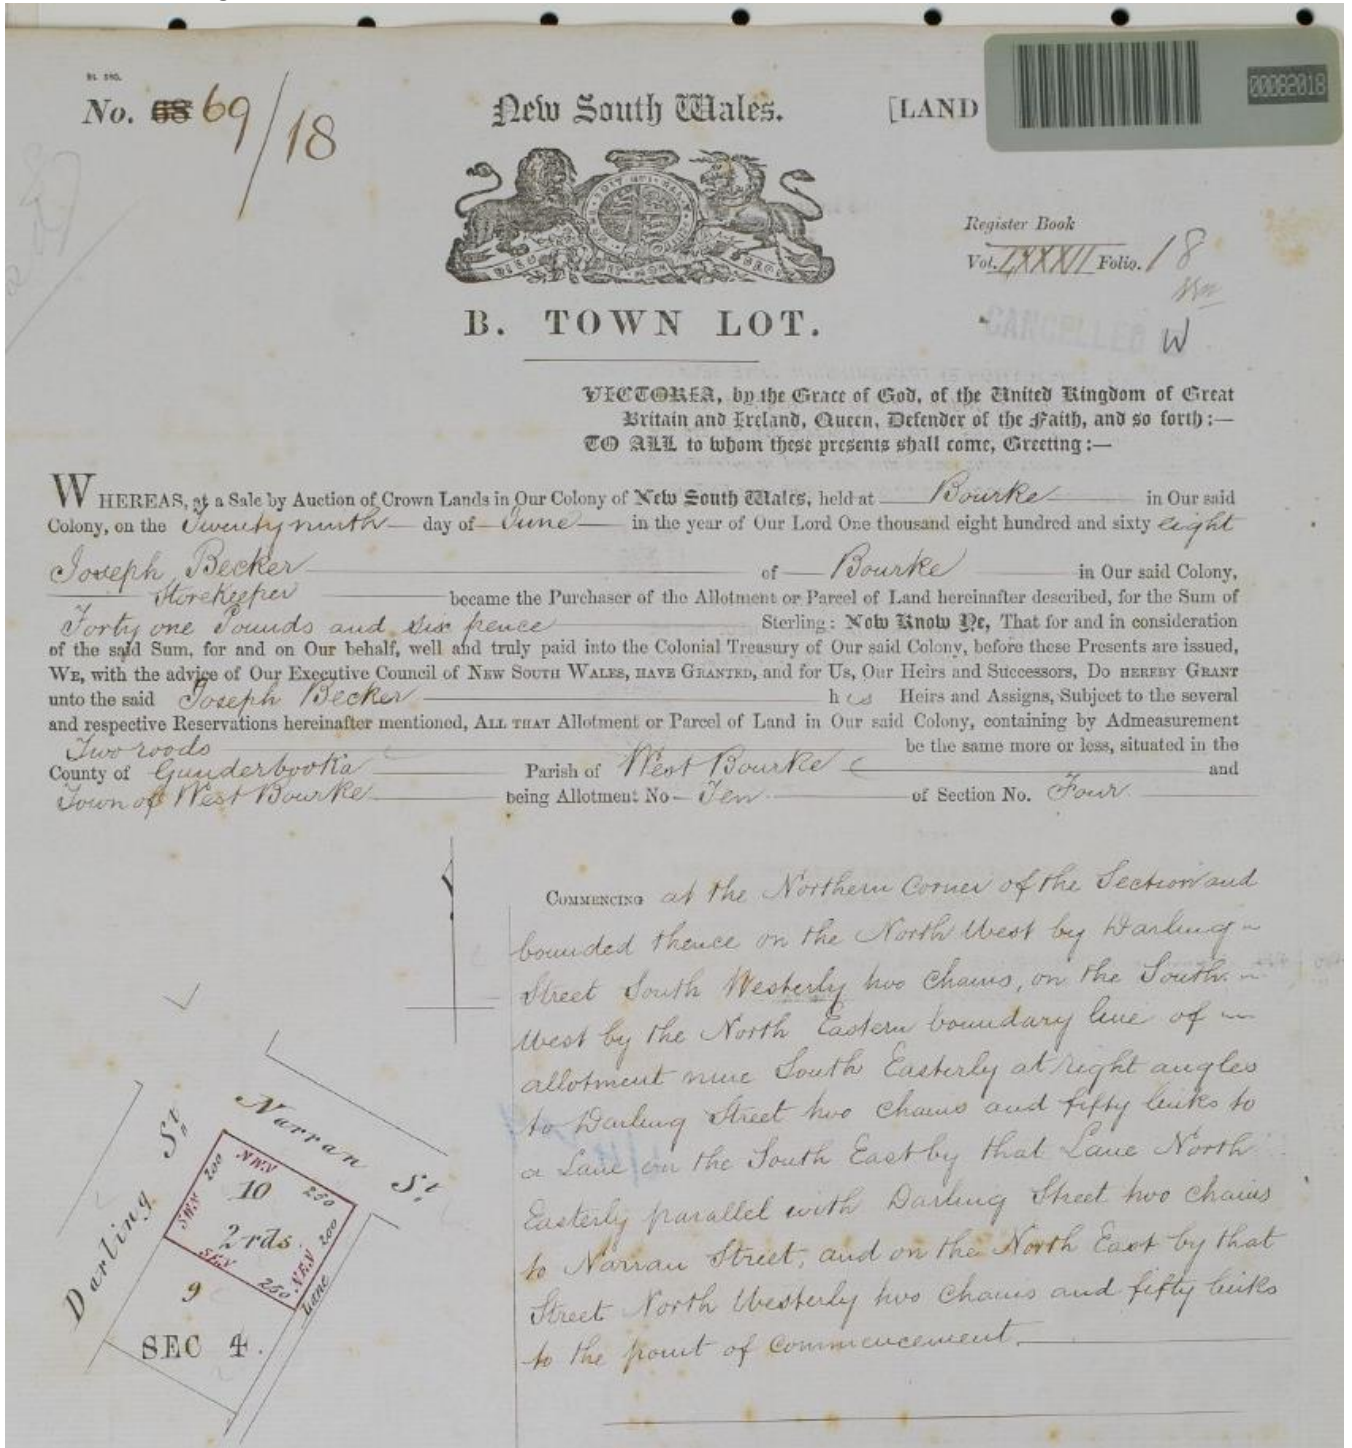 No. 68 69/18
New South Wales.
[LAND
00082018
Register Book
Vol. LXXXII Folio. 18
CANCELLED
W
B. TOWN LOT.
VICTORIA, by the Grace of God, of the United Kingdom of Great
Britain and Ireland, Queen, Defender of the Faith, and so forth:—
TO ALL to whom these presents shall come, Greeting:—
WHEREAS, at a Sale by Auction of Crown Lands in Our Colony of New South Wales, held at Bourke in Our said
Colony, on the Twenty ninth day of June in the year of Our Lord One thousand eight hundred and sixty eight
Joseph Becker of Bourke in Our said Colony,
Storekeeper became the Purchaser of the Allotment or Parcel of Land hereinafter described, for the Sum of
Forty one Pounds and six pence Sterling: Now Know Ye, That for and in consideration
of the said Sum, for and on Our behalf, well and truly paid into the Colonial Treasury of Our said Colony, before these Presents are issued,
WE, with the advice of Our Executive Council of NEW SOUTH WALES, HAVE GRANTED, and for Us, Our Heirs and Successors, DO HEREBY GRANT
unto the said Joseph Becker his Heirs and Assigns, Subject to the several
and respective Reservations hereinafter mentioned, ALL THAT Allotment or Parcel of Land in Our said Colony, containing by Admeasurement
Two roods be the same more or less, situated in the
County of Gunderbooka Parish of West Bourke and
Town of West Bourke being Allotment No Ten of Section No. Four
COMMENCING at the Northern Corner of the Section and
bounded thence on the North West by Darling
Street South Westerly two chains, on the South
West by the North Eastern boundary line of
allotment nine South Easterly at right angles
to Darling Street two chains and fifty links to
a Lane on the South East by that Lane North
Easterly parallel with Darling Street two chains
to Narran Street, and on the North East by that
Street North Westerly two chains and fifty links
to the point of commencement.
Darling St
Narran St
200
N.W.
10
250
S.W.
2 rds.
S.E.
250
N.E.
200
Lane
9
SEC 4.